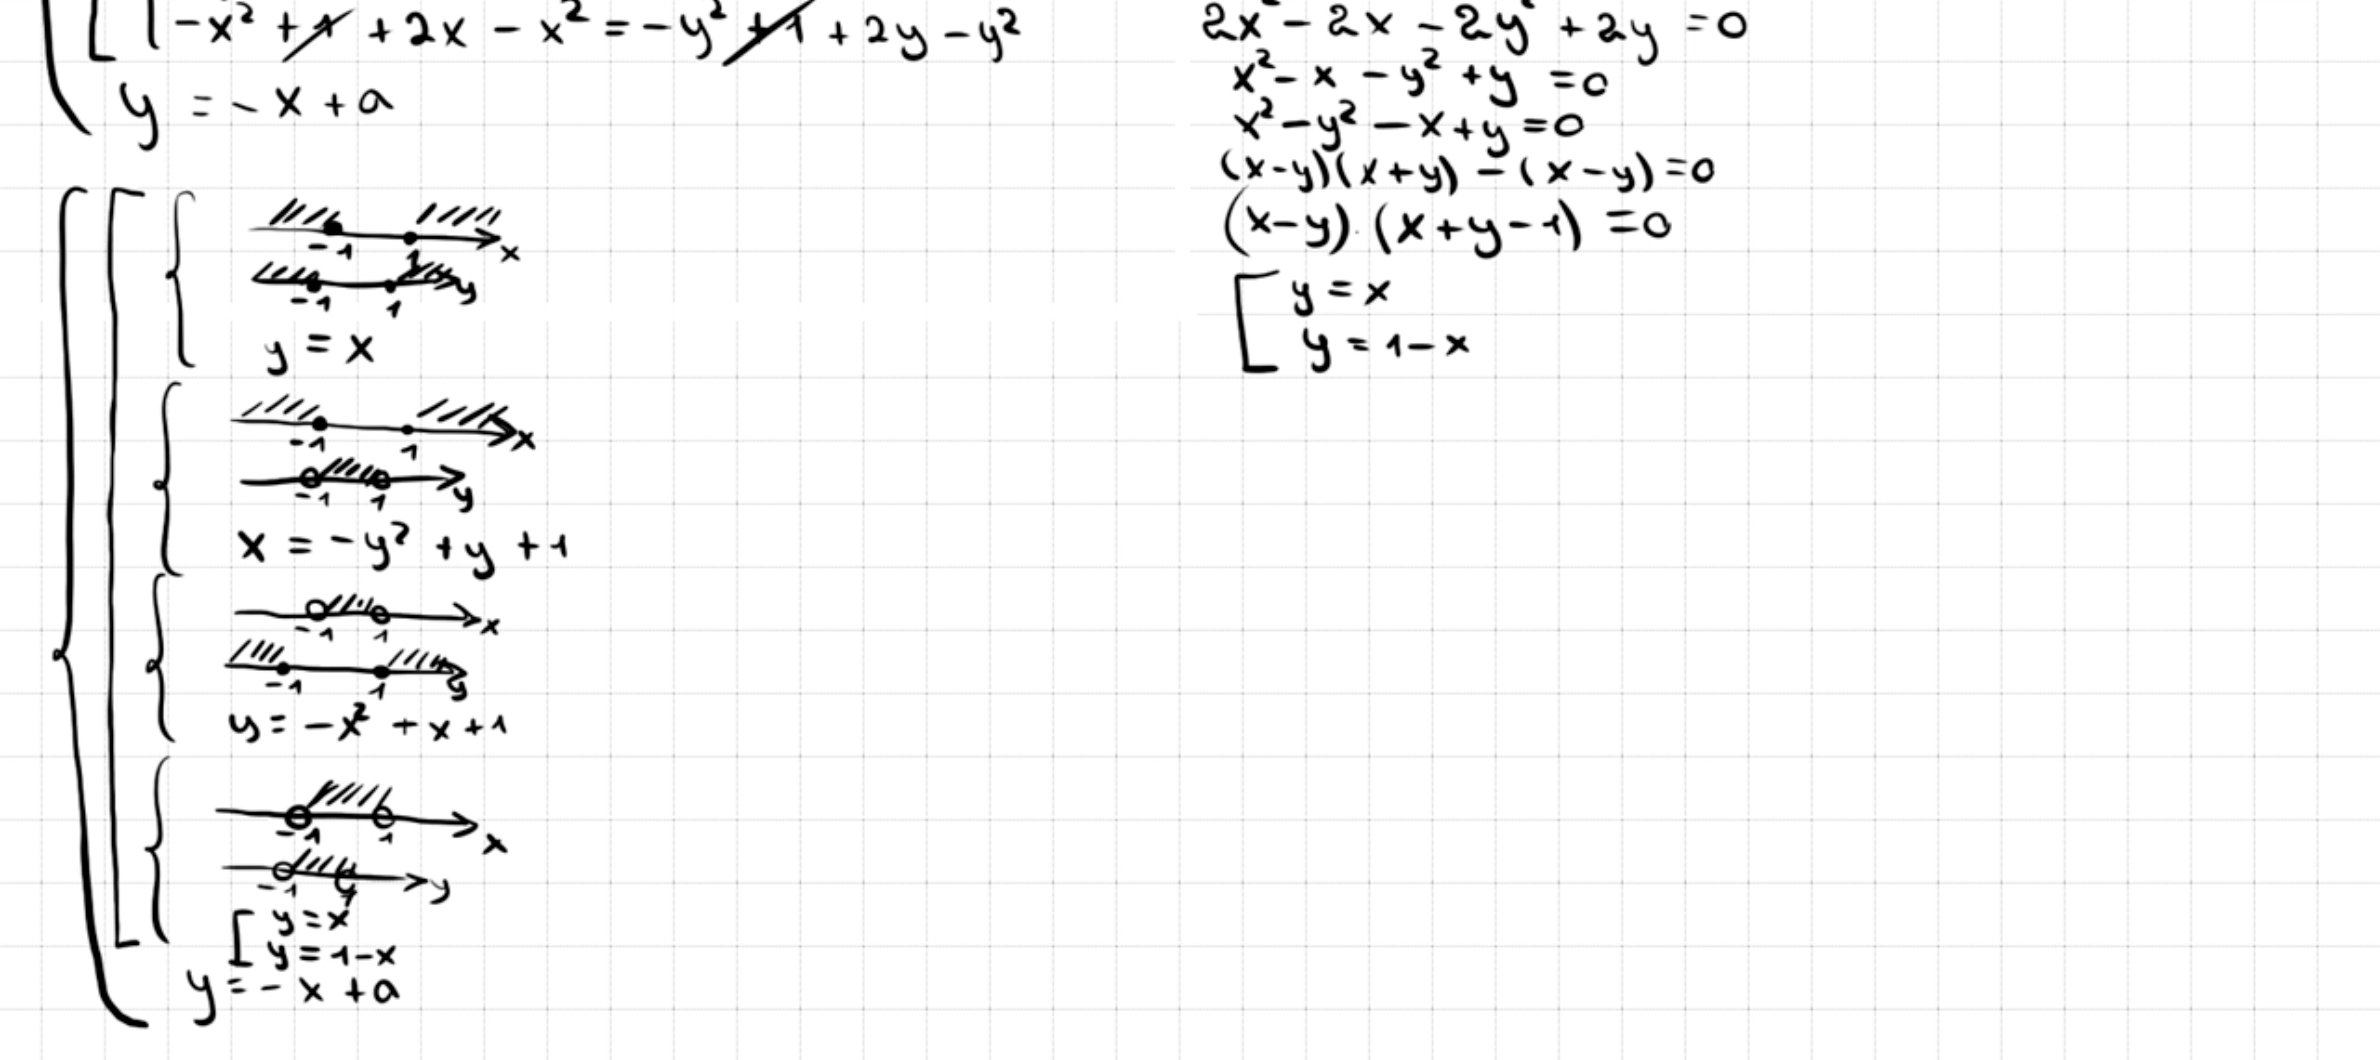 -x² + 1 + 2x - x² = -y² + 1 + 2y - y²
y = -x + a
-1 1 x
-1 1 y
y = x
-1 1 x
-1 1 y
x = -y² + y + 1
-1 1 x
-1 1 y
y = -x² + x + 1
-1 1 x
-1 1 y
y = x
y = 1-x
y = -x + a
2x² - 2x - 2y² + 2y = 0
x² - x - y² + y = 0
x² - y² - x + y = 0
(x-y)(x+y) - (x-y) = 0
(x-y)·(x+y-1) = 0
y = x
y = 1-x